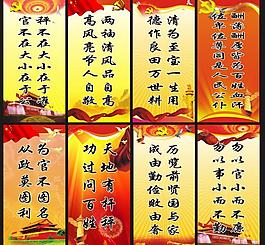 秤不在大小在于
官不在大小在于公
两袖清风品自高
高风亮节人自敬
清为至宝一生用
德作良田万世耕
百姓血汗
同是人民公仆
为官不图名
从政莫图利
天地有杆秤
功过问百姓
历览前贤国与家
成由勤俭败由奢
勿以官小而不廉
勿以事小而不勤